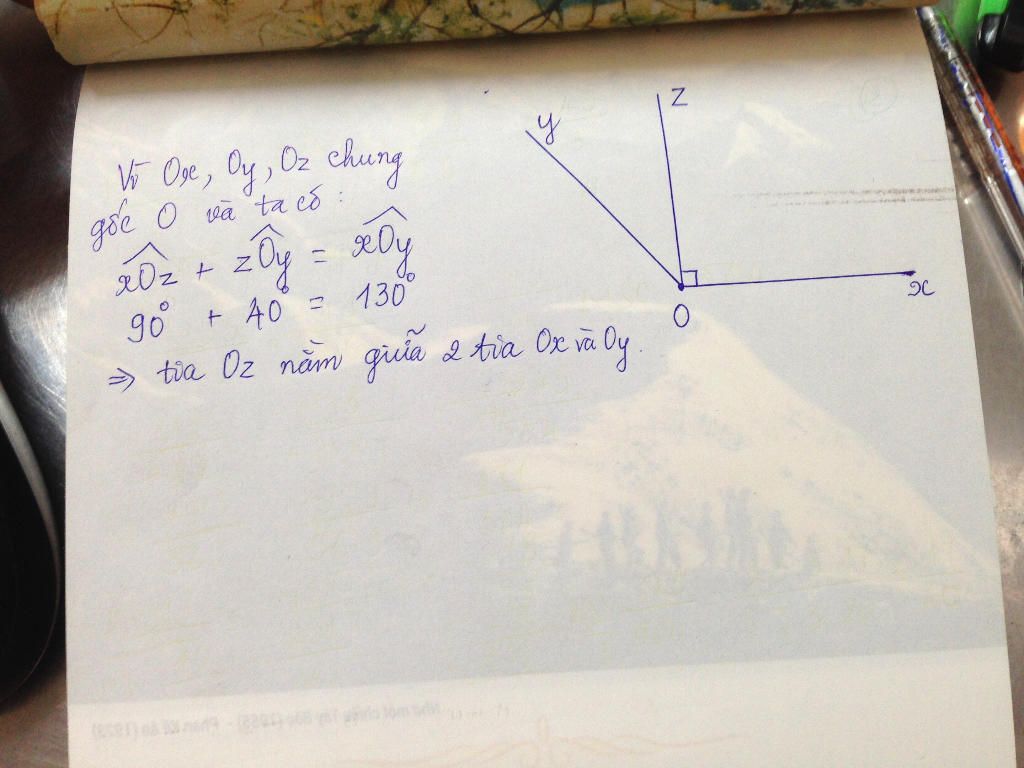 Vì Ox, Oy, Oz chung
gốc O và ta có :
xOz + zOy = xOy
90° + 40° = 130°
=> tia Oz nằm giữa 2 tia Ox và Oy.
y
z
x
O
Như một chiều Tây Bắc (1955) - Phan Kế An (1923)